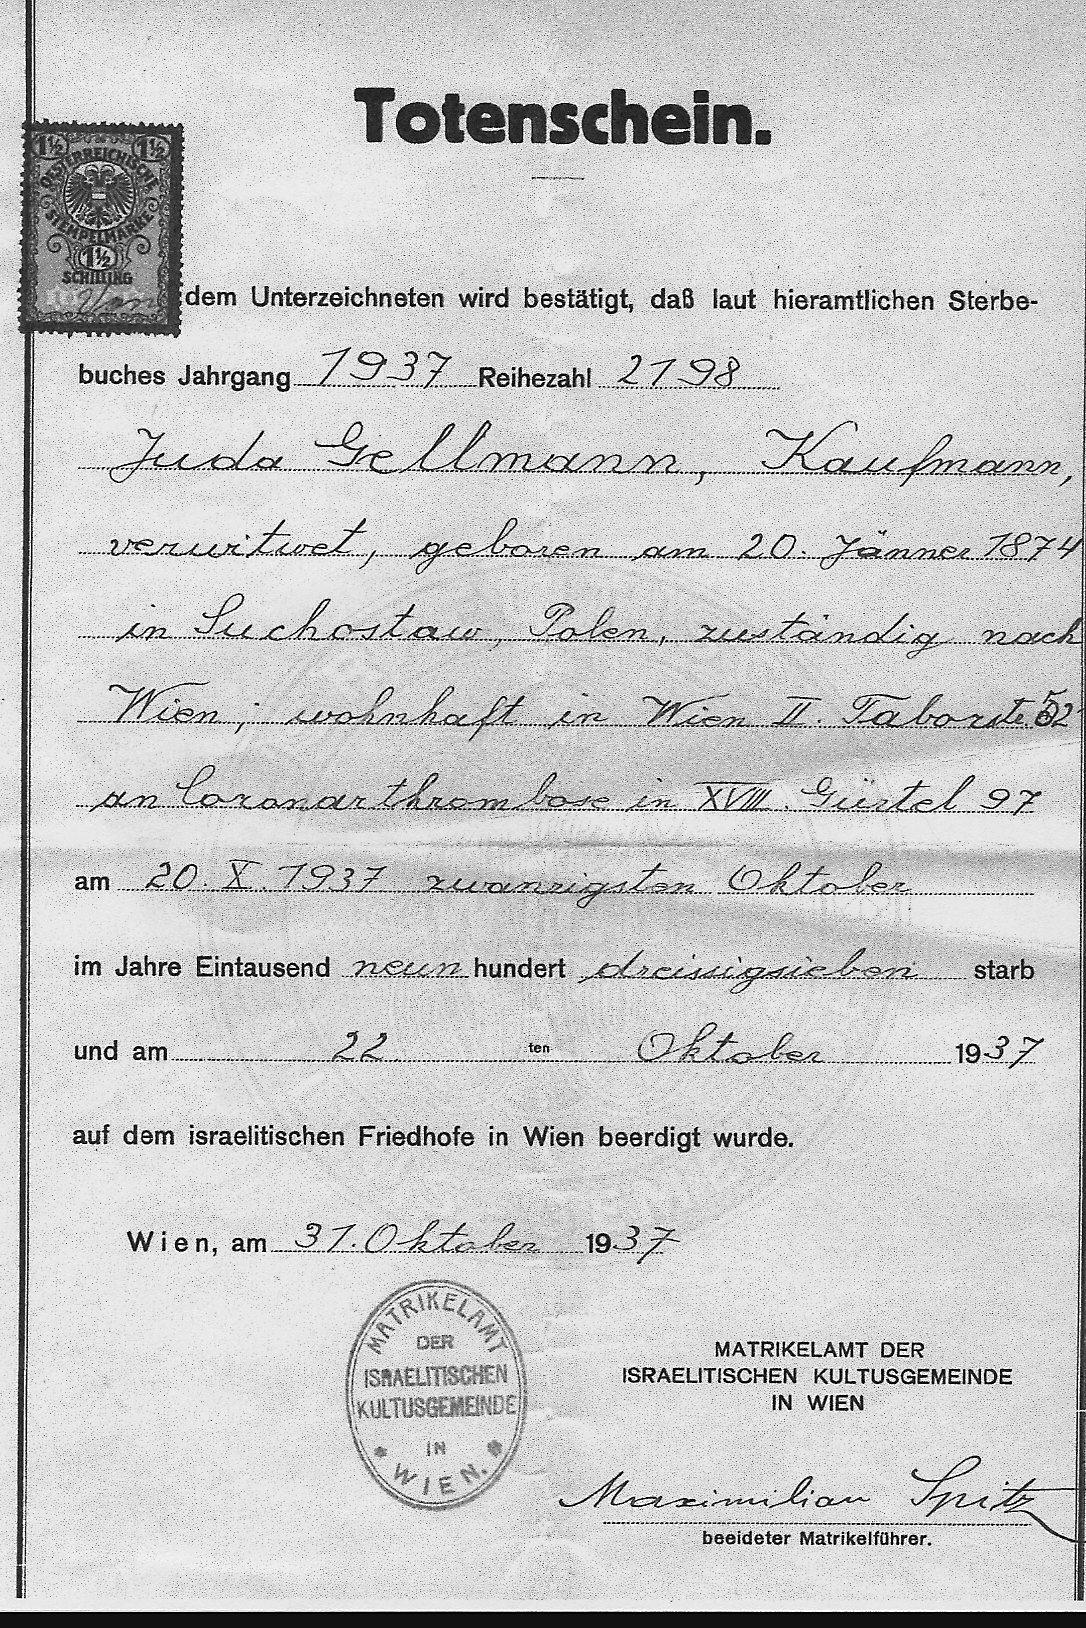 Totenschein.
1½ 1½
OESTERREICHISCHE
STEMPELMARKE
1½
SCHILLING
dem Unterzeichneten wird bestätigt, daß laut hieramtlichen Sterbe-
buches Jahrgang 1937 Reihezahl 2198
Juda Gellmann, Kaufmann,
verwitwet, geboren am 20. Jänner 1874
in Suchostaw, Polen, zuständig nach
Wien, wohnhaft in Wien II. Taborstr. 52
an Coronarthrombose in XVIII. Gürtel 97
am 20. X. 1937 zwanzigsten Oktober
im Jahre Eintausend neun hundert dreissigsieben starb
und am 22 ten Oktober 1937
auf dem israelitischen Friedhofe in Wien beerdigt wurde.
Wien, am 31. Oktober 1937
MATRIKELAMT
DER
ISRAELITISCHEN
KULTUSGEMEINDE
IN
WIEN.
MATRIKELAMT DER
ISRAELITISCHEN KULTUSGEMEINDE
IN WIEN
Maximilian Spitz
beeideter Matrikelführer.